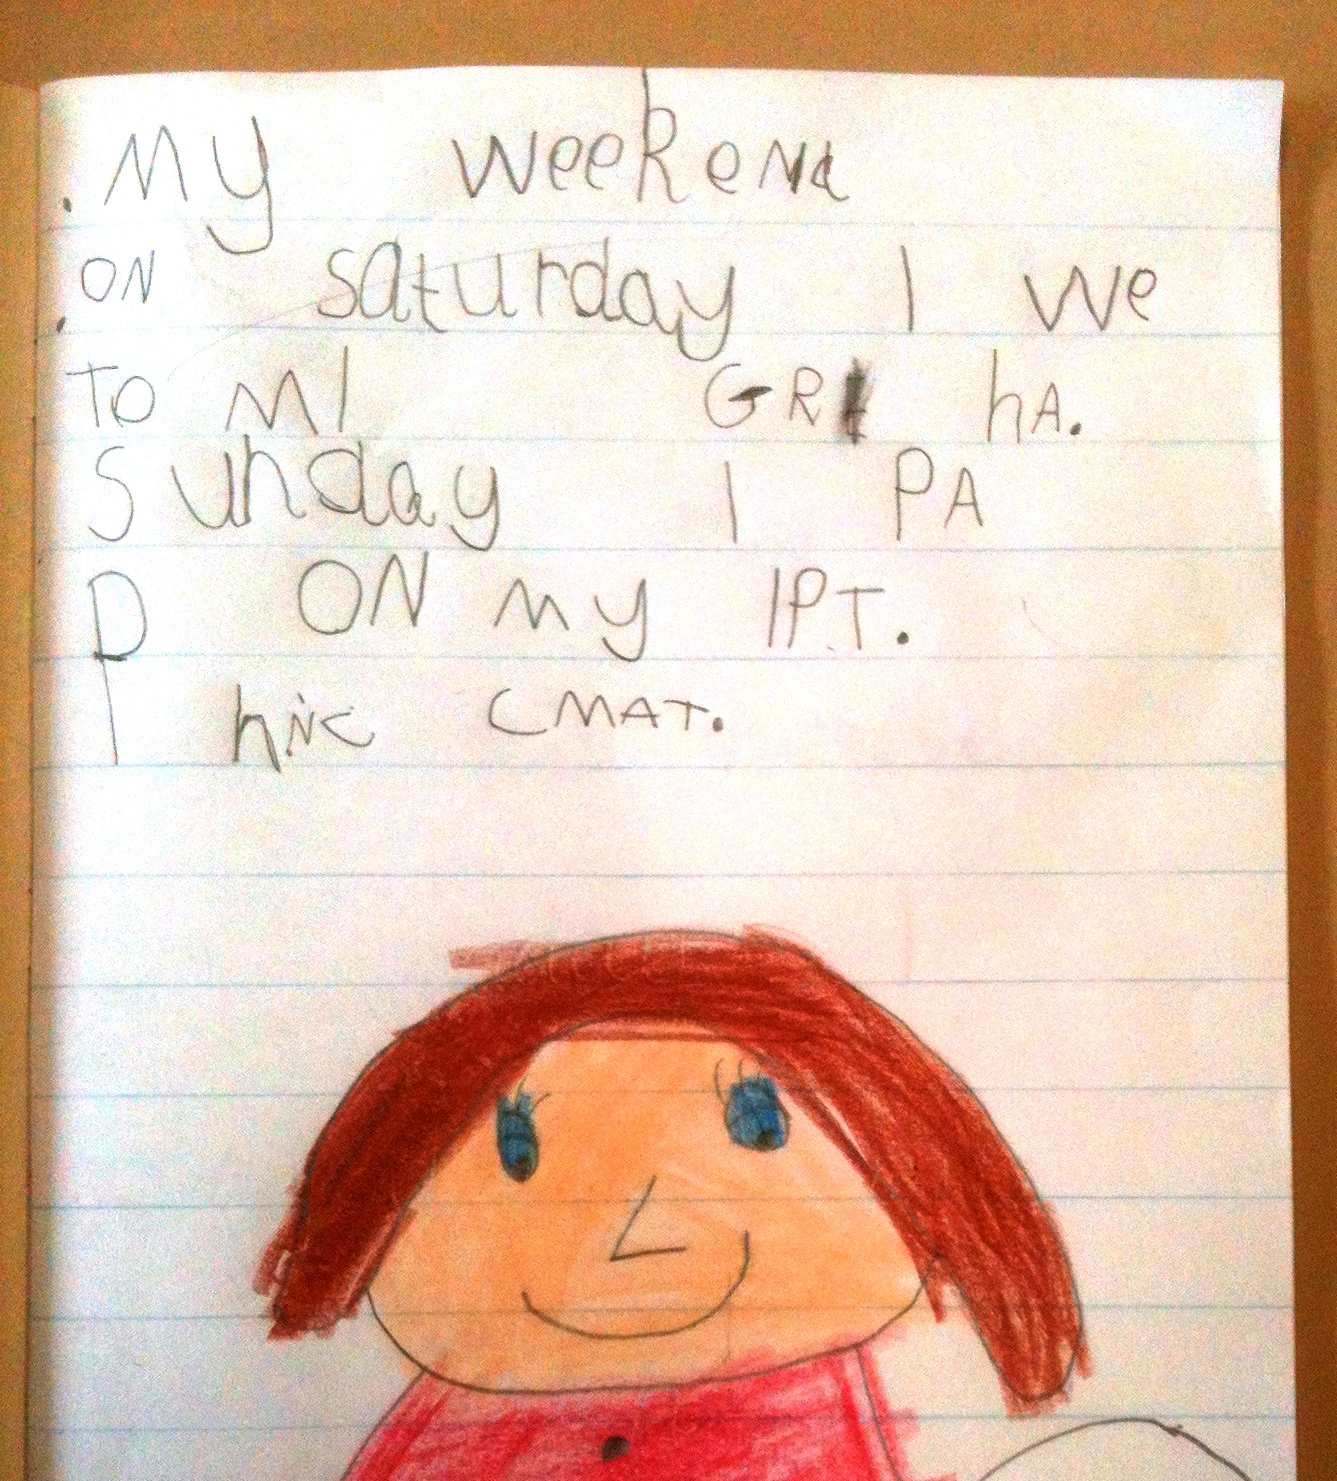 . My weekend
. ON saturday I we
To MI GR hA.
Sunday I PA
P ON My IPT.
I hNc CMAT.